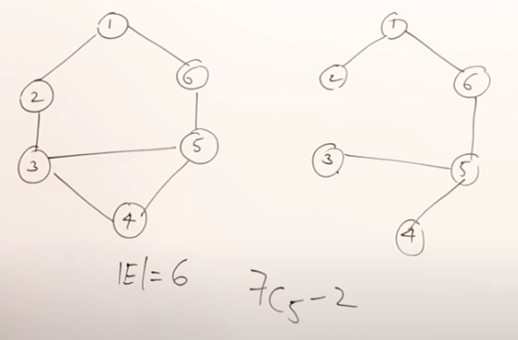 1
2
6
3
5
4
1
2
6
3
5
4
|E|= 6
7C5-2